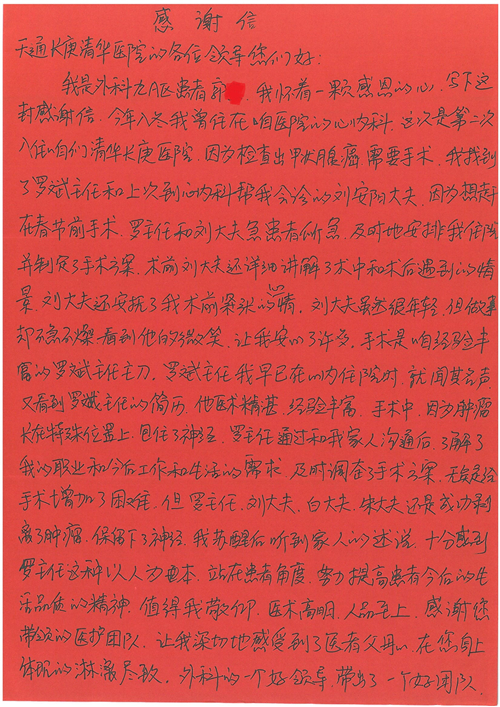 感谢信
天通长庚清华医院的各位领导您们好：
我是外科九A区患者郭 ，我怀着一颗感恩的心，写下这
封感谢信。今年入冬我曾住在咱医院的心内科，这次是第二次
入住咱们清华长庚医院，因为检查出甲状腺癌需要手术，我找到
了罗斌主任和上次到心内科帮我会诊的刘安阳大夫，因为想赶
在春节前手术，罗主任和刘大夫急患者所急，及时地安排我住院
并制定了手术方案，术前刘大夫还详细讲解了术中和术后遇到的情
景，刘大夫还安抚了我术前紧张的心情，刘大夫虽然很年轻，但做事
却不急不燥一看到他的微笑，让我安心了许多，手术是咱经验丰
富的罗斌主任主刀，罗斌主任我早已在心内住院时，就闻其名声
又看到罗斌主任的简历，他医术精甚，经验丰富，手术中，因为肿瘤
长在特殊位置上，包住了神经，罗主任通过和我家人沟通后，了解了
我的职业和今后工作和生活的需求，及时调查了手术方案，无疑是给
手术增加了困难，但罗主任，刘大夫，白大夫，朱大夫还是成功剥
离了肿瘤，保留下了神经，我苏醒后听到家人的述说，十分感到
罗主任这种以人为思本，站在患者角度，努力提高患者今后的生
活品质的精神，值得我敬仰，医术高明，人品至上，感谢您
带领的医护团队，让我深切地感受到了医者父母心，在您身上
体现的淋漓尽致，外科的一个好领导，带出了一个好团队，